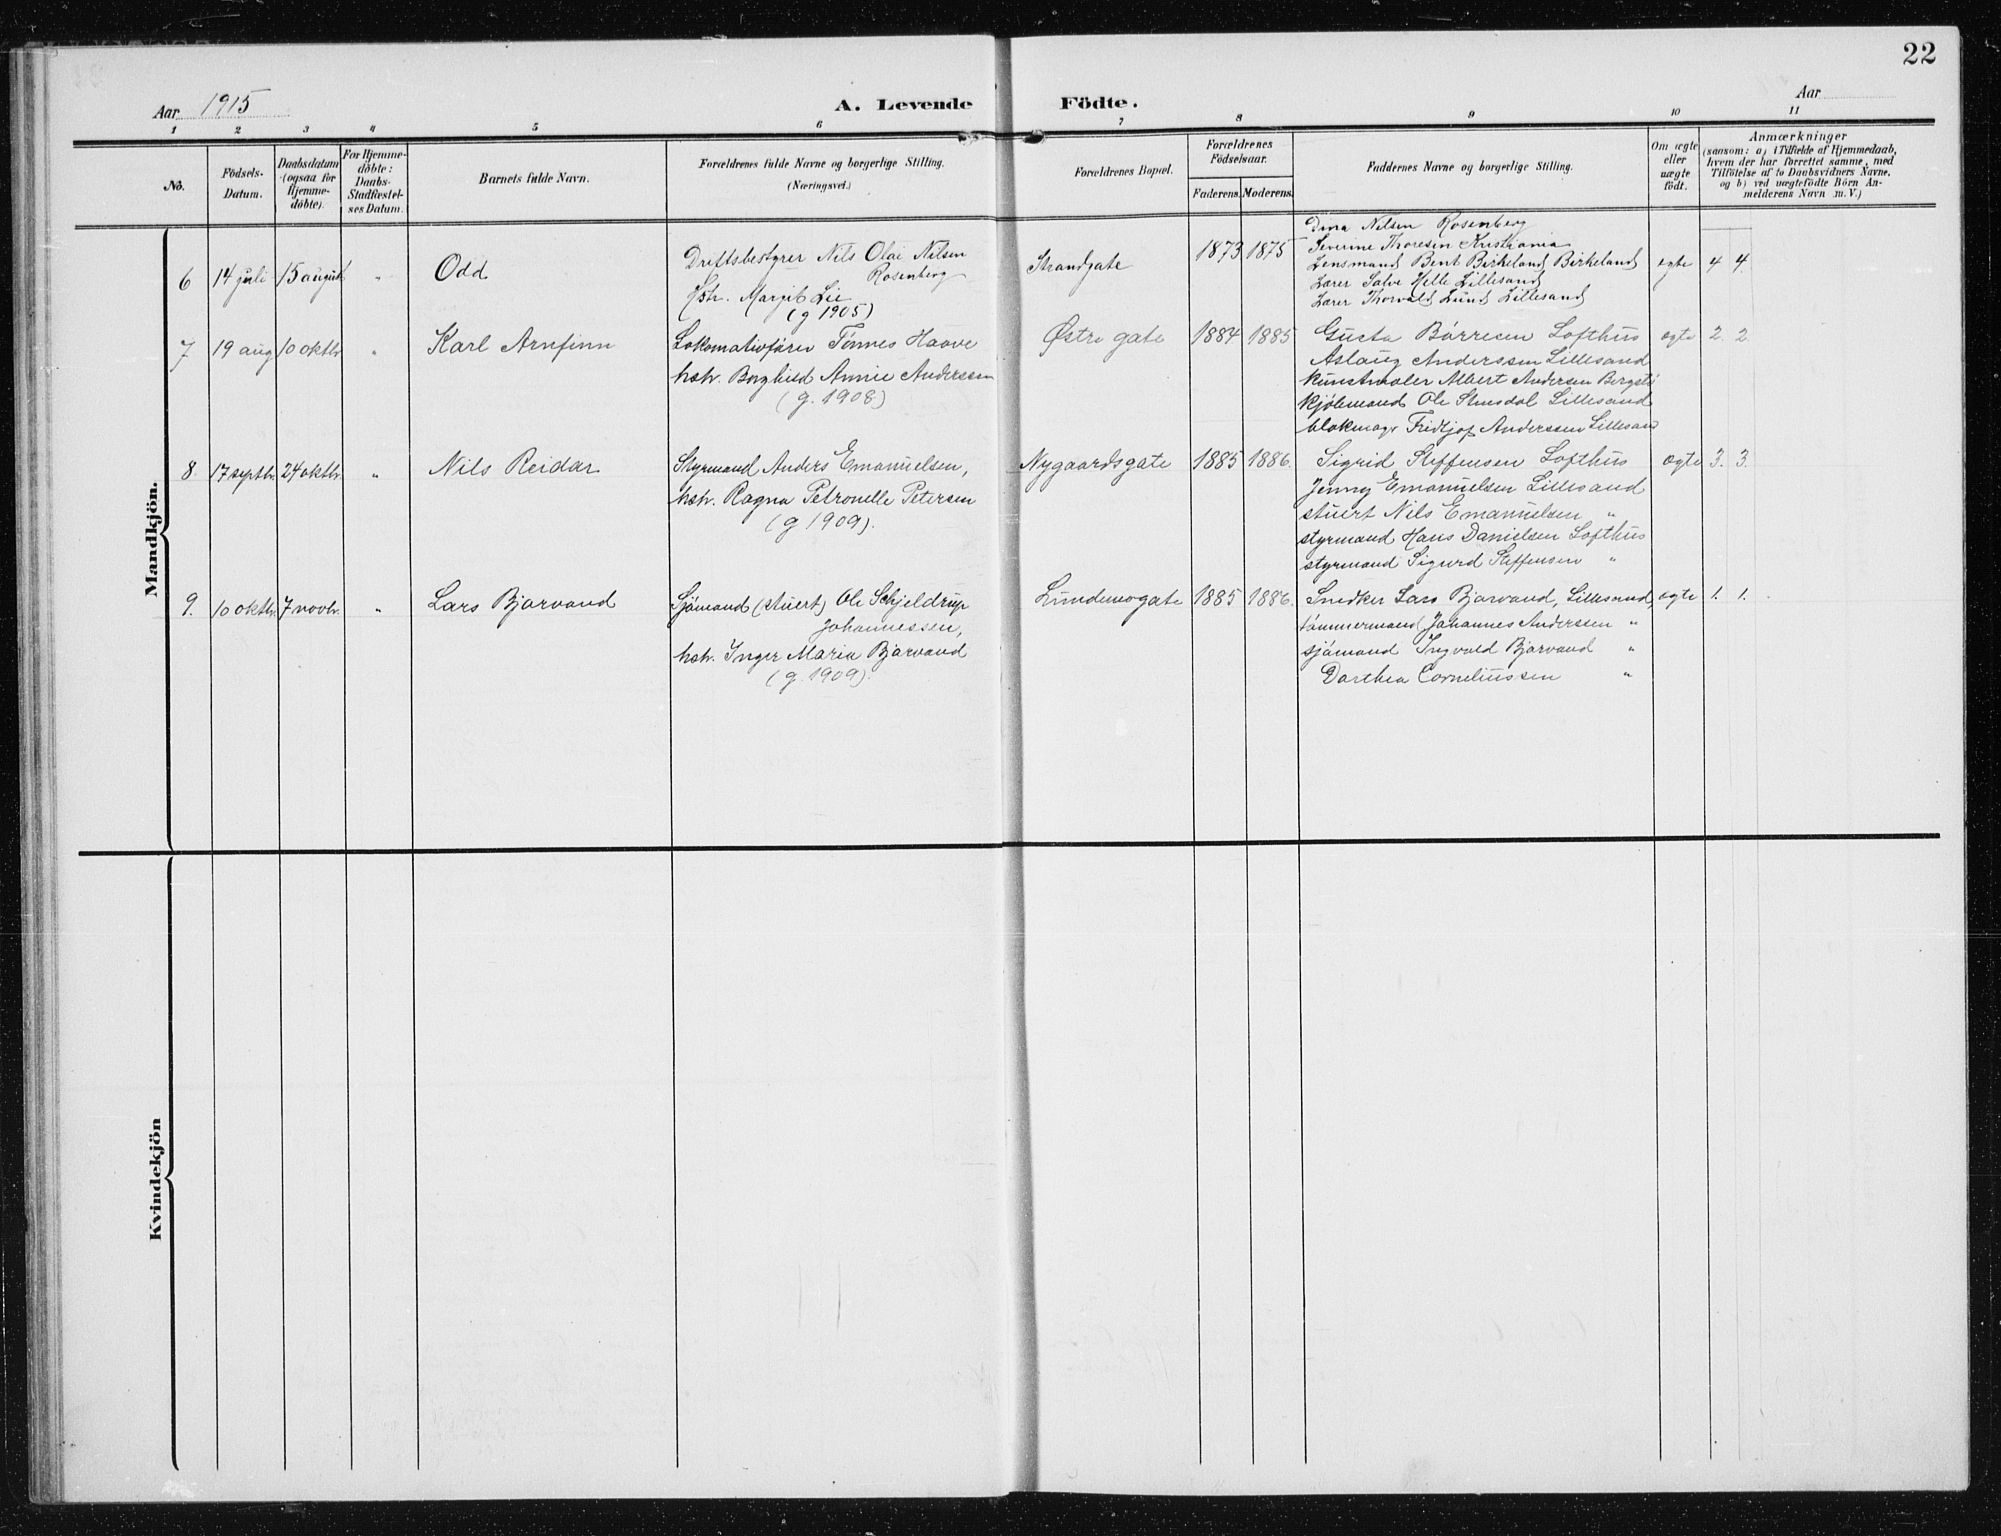 22
Aar 1915
A. Levende Födte.
Aar
1 2 3 4 5 6 7 8 9 10 11
No.
Födsels-
Datum.
Daabsdatum
(ogsaa for
Hjemme-
döbte).
For Hjemme-
döbte:
Daabs-
Stadfæstel-
ses Datum.
Barnets fulde Navn.
Forældrenes fulde Navne og borgerlige Stilling.
(Næringsvei.)
Forældrenes Bopæl.
Forældrenes
Födselsaar.
Faderens. Moderens.
Faddernes Navne og borgerlige Stilling.
Om ægte
eller
uægte
födt.
Anmærkninger
(saasom: a) i Tilfælde af Hjemmedaab,
hvem der har forrettet samme, med
Tilföielse af to Daabsvidners Navne,
og b) ved uægtefödte Börn An-
melderens Navn m. V.)
Mandkjön.
6 14 juli 15 august " Odd
Driftsbestyrer Nils Olai Nilsen
Rosenberg
Hstr. Margit Lie
(g 1905)
Strandgate 1873 1875
Dina Nilsen Rosenberg
Severine Thoresen Kristiania
Lensmand Bent Birkeland Birkeland
Lærer Salve Helle Lillesand
Lærer Thorvald Lund Lillesand
ægte 4 4.
7 19 aug 10 oktbr " Karl Arnfinn
Lokomotivfører Tønnes Haave
hstr. Borghild Annie Anderssen
(g. 1908)
Østre gate 1884 1885
Gusta Börresen Lofthus
Aslaug Anderssen Lillesand
kunstmaler Albert Andersen
kjölemand Ole Lillesand
blokmag. Fridtjof Anderssen Lillesan
ægte 2. 2.
8 17 septbr. 24 oktbr. " Nils Reidar
Styrmand Anders Emanuelsen,
hstr. Ragna Petronelle Petersen
(g 1909).
Nygaardsgate 1885 1886.
Sigrid Steffensen Lofthus
Jenny Emanuelsen Lillesand
stuert Nils Emanuelsen "
styrmand Hans Danielsen Lofthus
styrmand Sigurd Steffensen "
ægte 3. 3.
9. 10 oktbr. 7 novbr. " Lars Bjarvand
Sjömand (stuert) Ole Schjeldrup
Johannessen,
hstr. Inger Marie Bjarvand
(g. 1909).
Lundemogate 1885 1886.
Snedker Lars Bjarvand, Lillesand,
tömmermand Johannes Andersen "
sjömand Ingvald Bjarvand "
Dorthea Corneliussen "
ægte 1. 1.
Kvindekjön